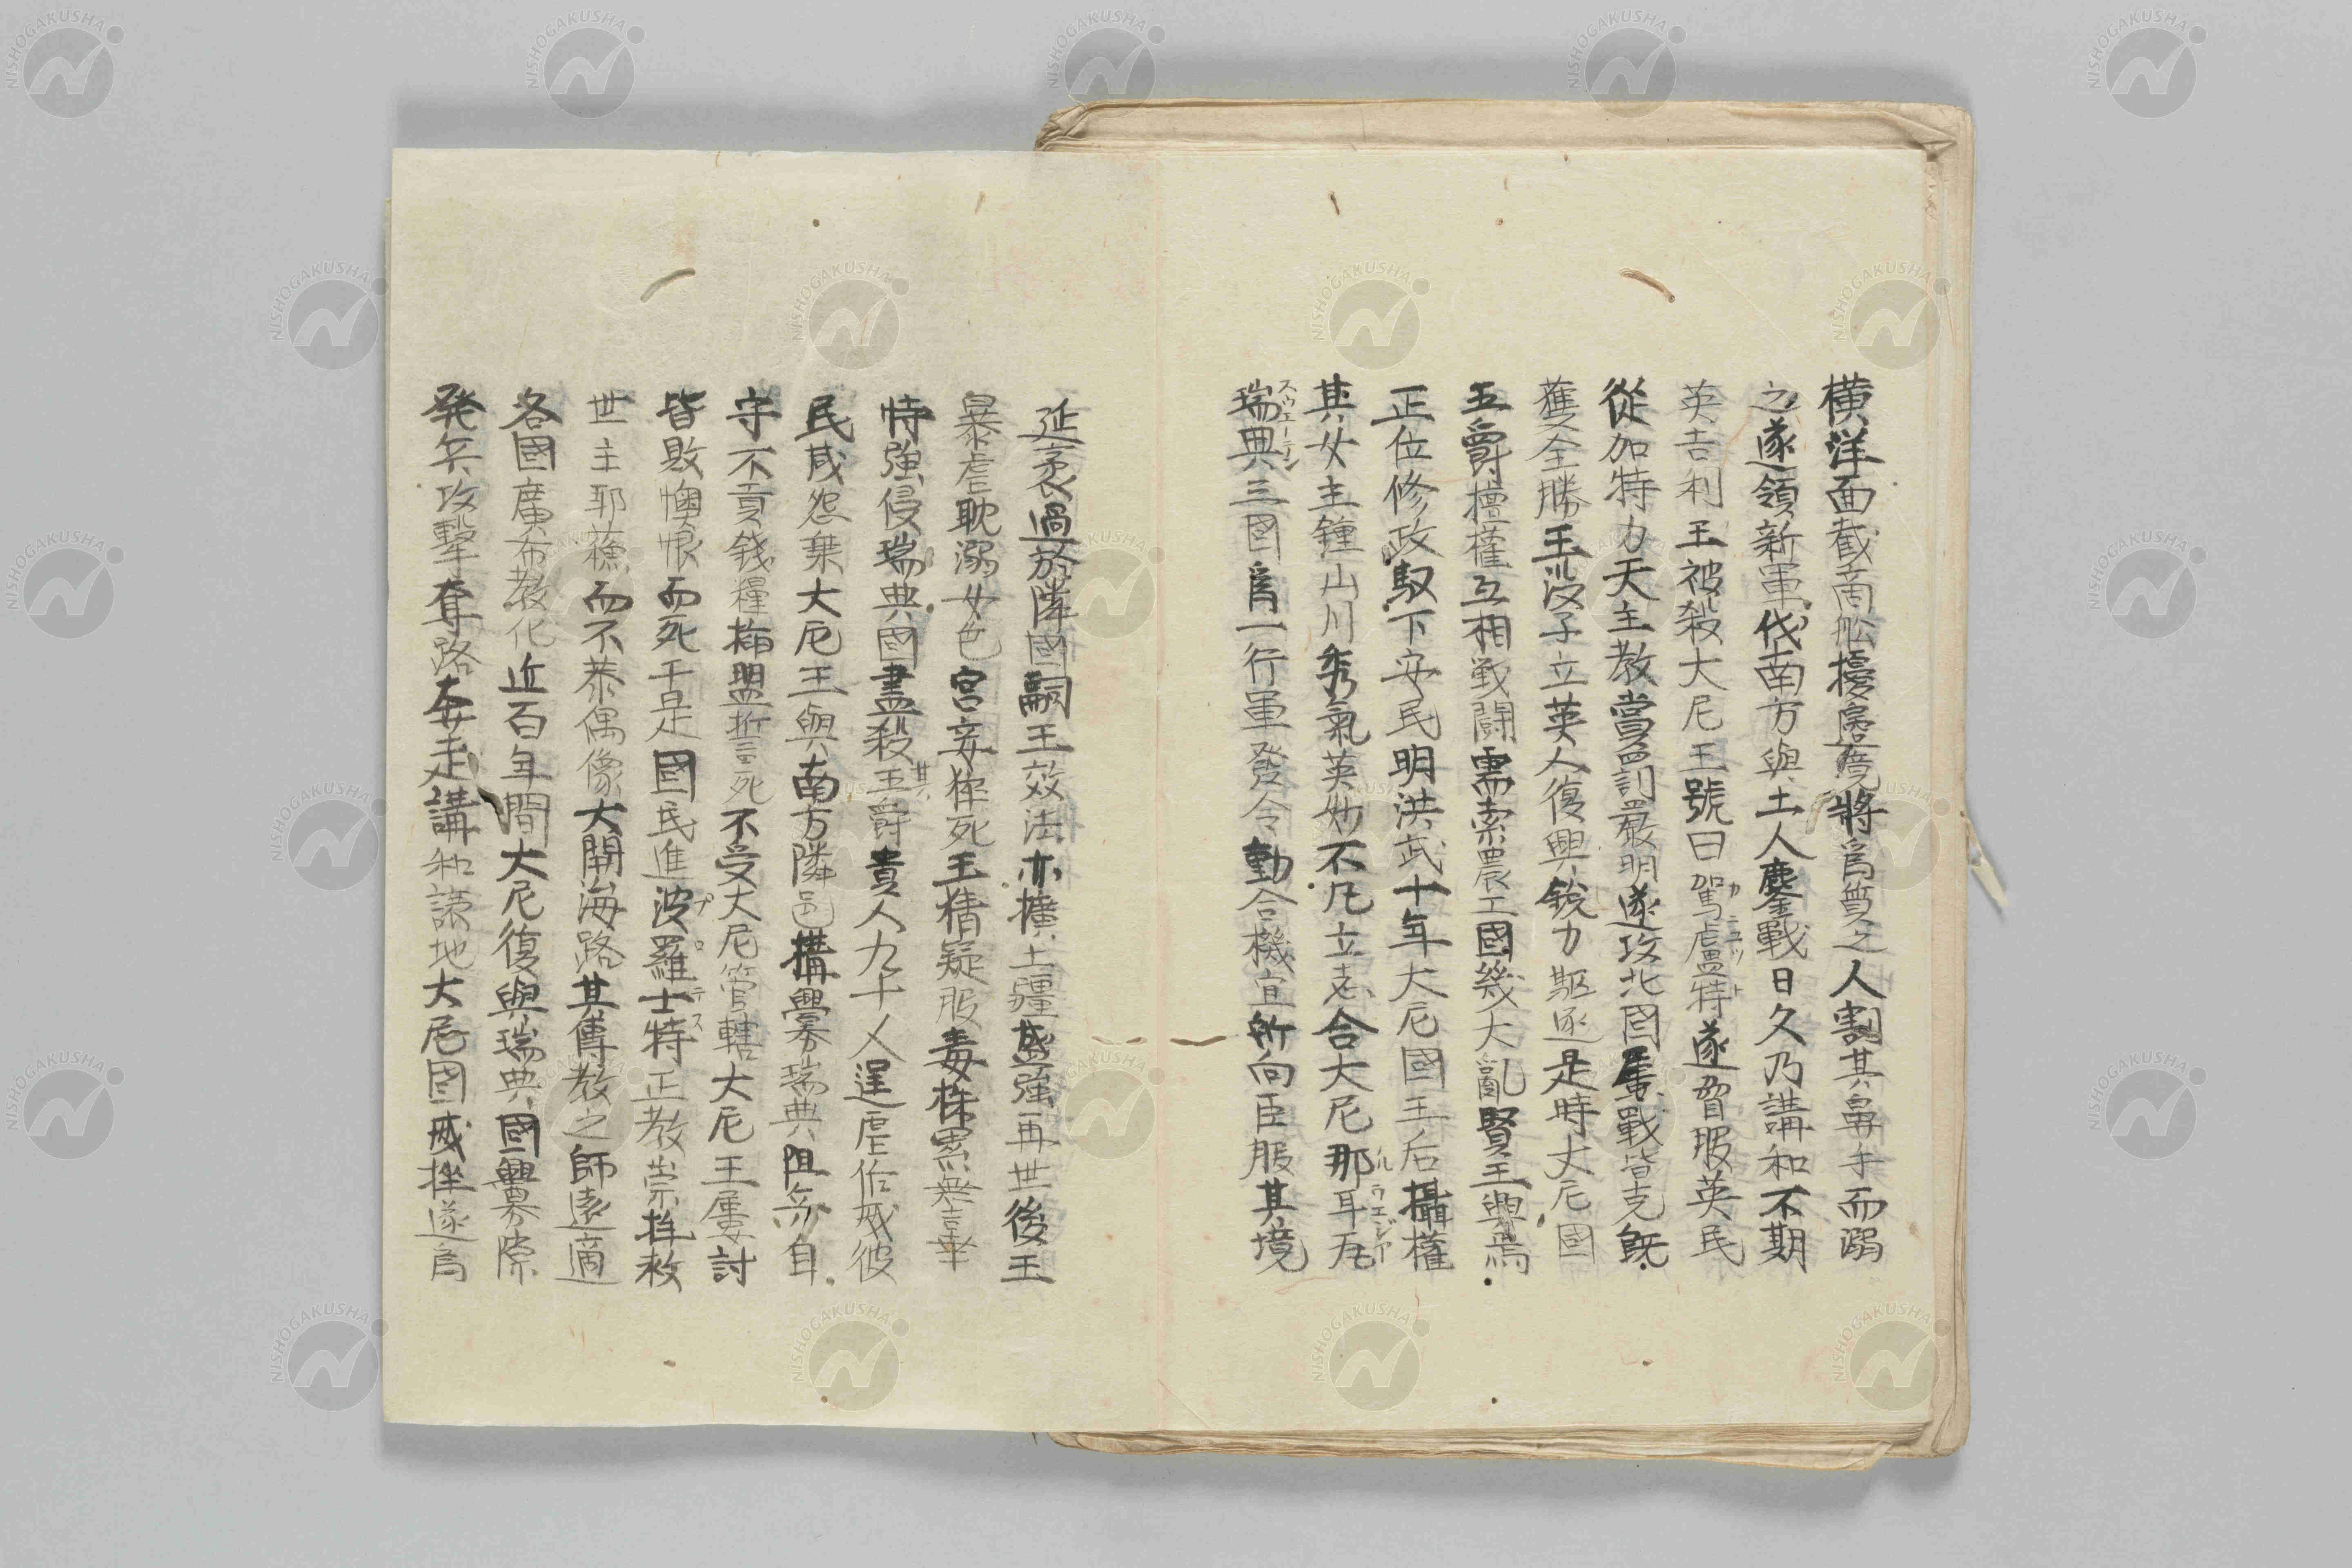 橫洋面截商舩擾邊境將爲質之人割其鼻手而溺
之遂領新軍伐南方與土人鏖戰日久乃講和不期
英吉利王被殺大尼王號曰駕盧特遂習服英民
カニユツト
從加特力天主教賞罰嚴明遂攻北國屢戰皆克旣
獲全勝王沒子立英人復興銳力駆逐是時大尼國
五爵擅權互相戦鬪需索農工國幾大亂賢王興焉
正位修政馭下安民明洪武十年大尼國王后攝權
其女主鍾山川秀氣英妙不凡立志合大尼那耳瓦
ルウエジア
瑞典三國爲一行軍發令動合機宜所向臣服其境
スウエーデン
延袤過於隣國嗣王效法亦擴土疆盛強再世後王
暴虐耽溺女色宮妾猝死王猜疑服毒株累無辜
恃強侵瑞典國盡殺其五爵貴人九十人逞虐作威彼
民咸怨棄大尼王與南方隣邑搆釁瑞典阻氷自
守不貢錢糧揷盟誓死不受大尼管轄大尼王屢討
皆敗懊恨而死于是國民進波羅士特正教崇拝救
プロテス
世主耶穌而不恭偶像大開海路其傳教之師遠適
各國廣布敎化近百年間大尼復與瑞典國釁隙
発兵攻擊奪路奔走講和讓地大尼國威挫遂爲
NISHOGAKUSHA